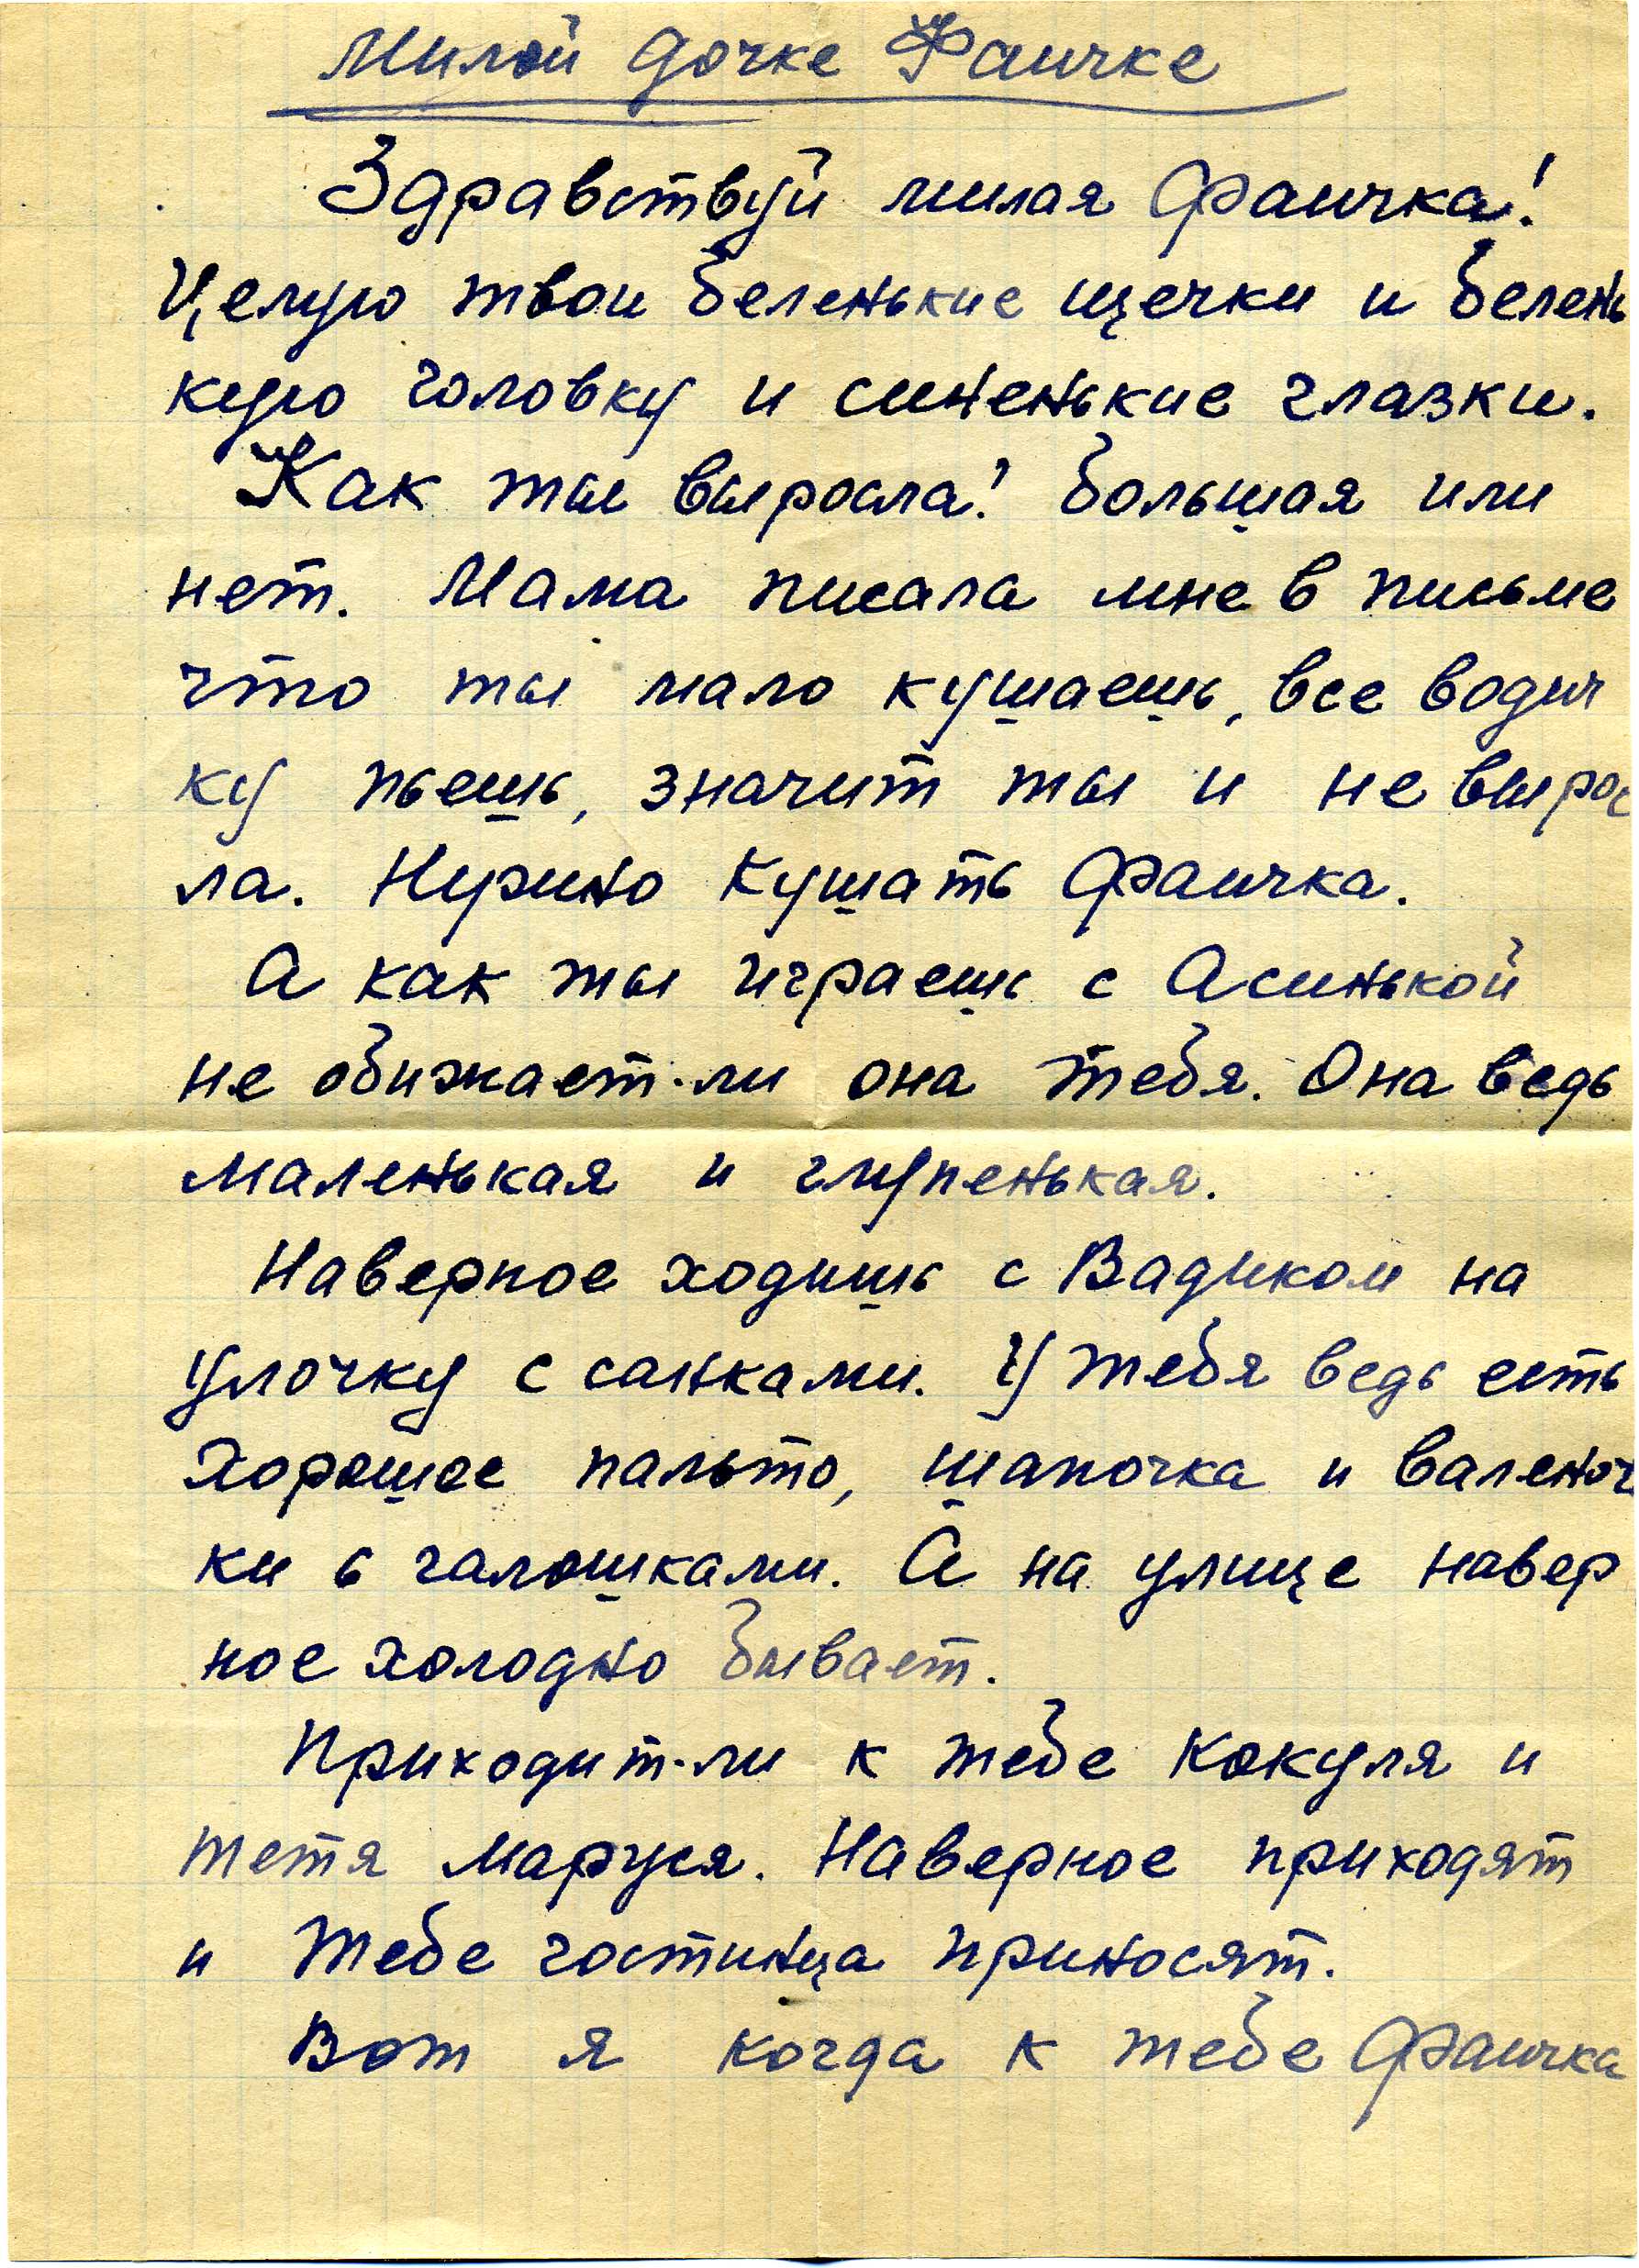 Милой дочке Фаичке
Здравствуй милая Фаичка!
Целую твои беленькие щечки и белень
кую головку и синенькие глазки.
Как ты выросла! большая или
нет. Мама писала мне в письме
что ты мало кушаешь, все водич
ку пьешь, значит ты и не вырос
ла. Нужно кушать Фаичка.
А как ты играешь с Асинькой
не обижает-ли она тебя. Она ведь
маленькая и глупенькая.
Наверное ходишь с Вадиком на
улочку с санками. У тебя ведь есть
хорошее пальто, шапочка и валеноч
ки с галошками. А на улице навер
ное холодно бывает.
Приходит-ли к тебе Кокуля и
тетя Маруся. Наверное приходят
и тебе гостинца приносят.
Вот я когда к тебе Фаичка